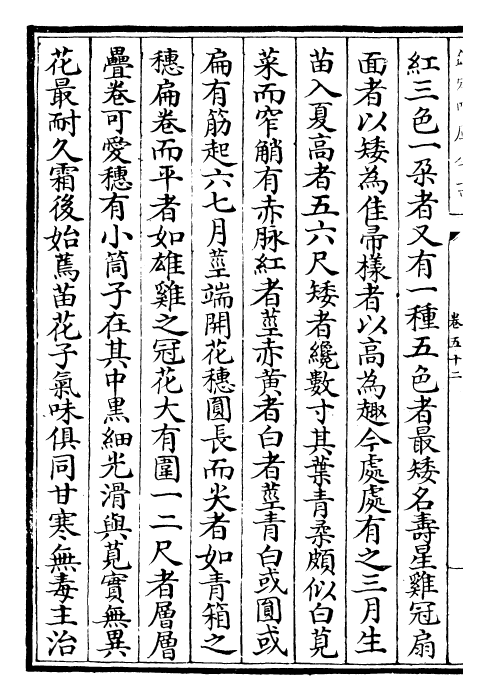 卷五十二
紅三色一朶者又有一種五色者最矮名壽星雞冠扇
面者以矮為佳帚樣者以高為趣今處處有之三月生
苗入夏高者五六尺矮者纔數寸其葉青柔頗似白莧
菜而窄艄有赤脉紅者莖赤黃者白者莖青白或圓或
扁有筋起六七月莖端開花穗圓長而尖者如青箱之
穗扁卷而平者如雄雞之冠花大有圍一二尺者層層
疊卷可愛穗有小筒子在其中黑細光滑與莧實無異
花最耐久霜後始蔫苗花子氣味俱同甘寒無毒主治